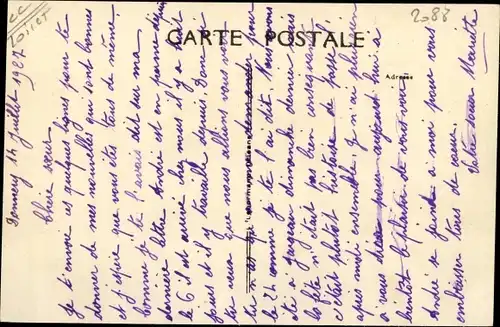 CC
Loiret
2088
CARTE POSTALE
Adresse
Donnery 14 Juillet 1927
Chère sœur
Je t'envoie ces quelques lignes pour te
donner de mes nouvelles qui sont bonnes
et j'espère que vous êtes tous de même.
comme je te l'avais dit sur ma
dernière lettre André est en panne depuis
le 6 il est arrivé chez mes il y a huit
jours et il y travaille depuis. Donc
tu veux que nous allions vous voir
le 24 comme je te l'ai dit. Nous avons
été à Jargeau dimanche dernier mais
la fête n'était pas bien conséquente
c'était plutôt histoire de passer
après midi ensemble. Je n'ai plus rien
à vous dire pour aujourd'hui à
bientôt le plaisir de vous voir.
André se joint à moi pour vous
embrasser tous de cœur.
Votre sœur Mariette